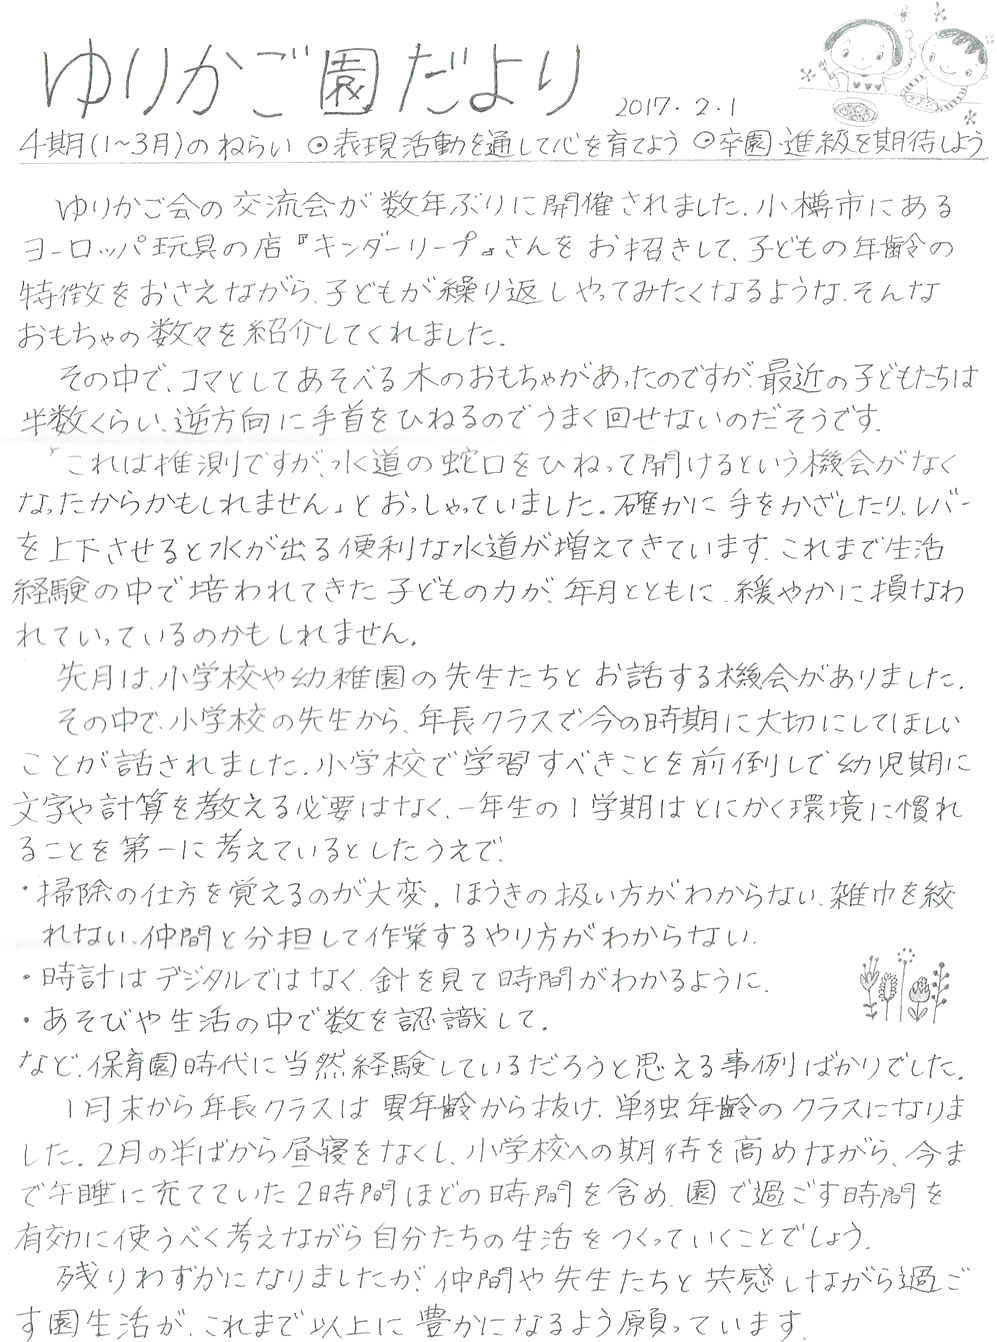 ゆりかご園だより 2017.2.1
4期(1～3月)のねらい ⊙表現活動を通して心を育てよう ⊙卒園・進級を期待しよう
ゆりかご会の交流会が数年ぶりに開催されました。小樽市にある
ヨーロッパ玩具の店『キンダーリープ』さんをお招きして、子どもの年齢の
特徴をおさえながら、子どもが繰り返しやってみたくなるような、そんな
おもちゃの数々を紹介してくれました。
その中で、コマとしてあそべる木のおもちゃがあったのですが、最近の子どもたちは
半数くらい、逆方向に手首をひねるのでうまく回せないのだそうです。
「これは推測ですが、水道の蛇口をひねって開けるという機会がなく
なったからかもしれません」とおっしゃっていました。確かに手をかざしたり、レバー
を上下させると水が出る便利な水道が増えてきています。これまで生活
経験の中で培われてきた子どもの力が、年月とともに、緩やかに損なわ
れていっているのかもしれません。
先月は、小学校や幼稚園の先生たちとお話する機会がありました。
その中で、小学校の先生から、年長クラスで今の時期に大切にしてほしい
ことが話されました。小学校で学習すべきことを前倒しで幼児期に
文字や計算を教える必要はなく、一年生の1学期はとにかく環境に慣れ
ることを第一に考えているとしたうえで、
・掃除の仕方を覚えるのが大変。ほうきの扱い方がわからない、雑巾を絞
れない、仲間と分担して作業するやり方がわからない。
・時計はデジタルではなく、針を見て時間がわかるように。
・あそびや生活の中で数を認識して。
など、保育園時代に当然経験しているだろうと思える事例ばかりでした。
1月末から年長クラスは異年齢から抜け、単独年齢のクラスになりま
した。2月の半ばから昼寝をなくし、小学校への期待を高めながら、今ま
で午睡に充てていた2時間ほどの時間を含め、園で過ごす時間を
有効に使うべく考えながら自分たちの生活をつくっていくことでしょう。
残りわずかになりましたが、仲間や先生たちと共感しながら過ご
す園生活が、これまで以上に豊かになるよう願っています。